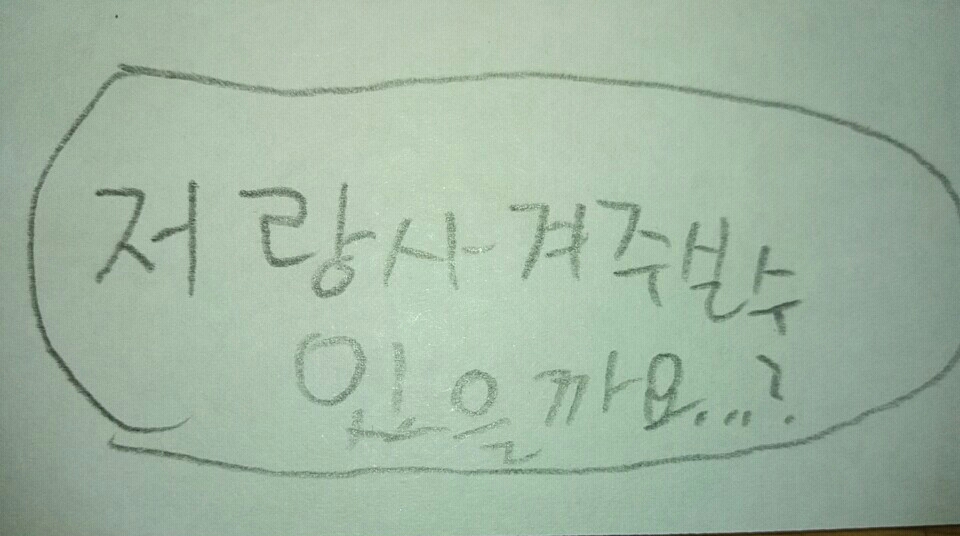 저랑사겨주실수
있을까요...?